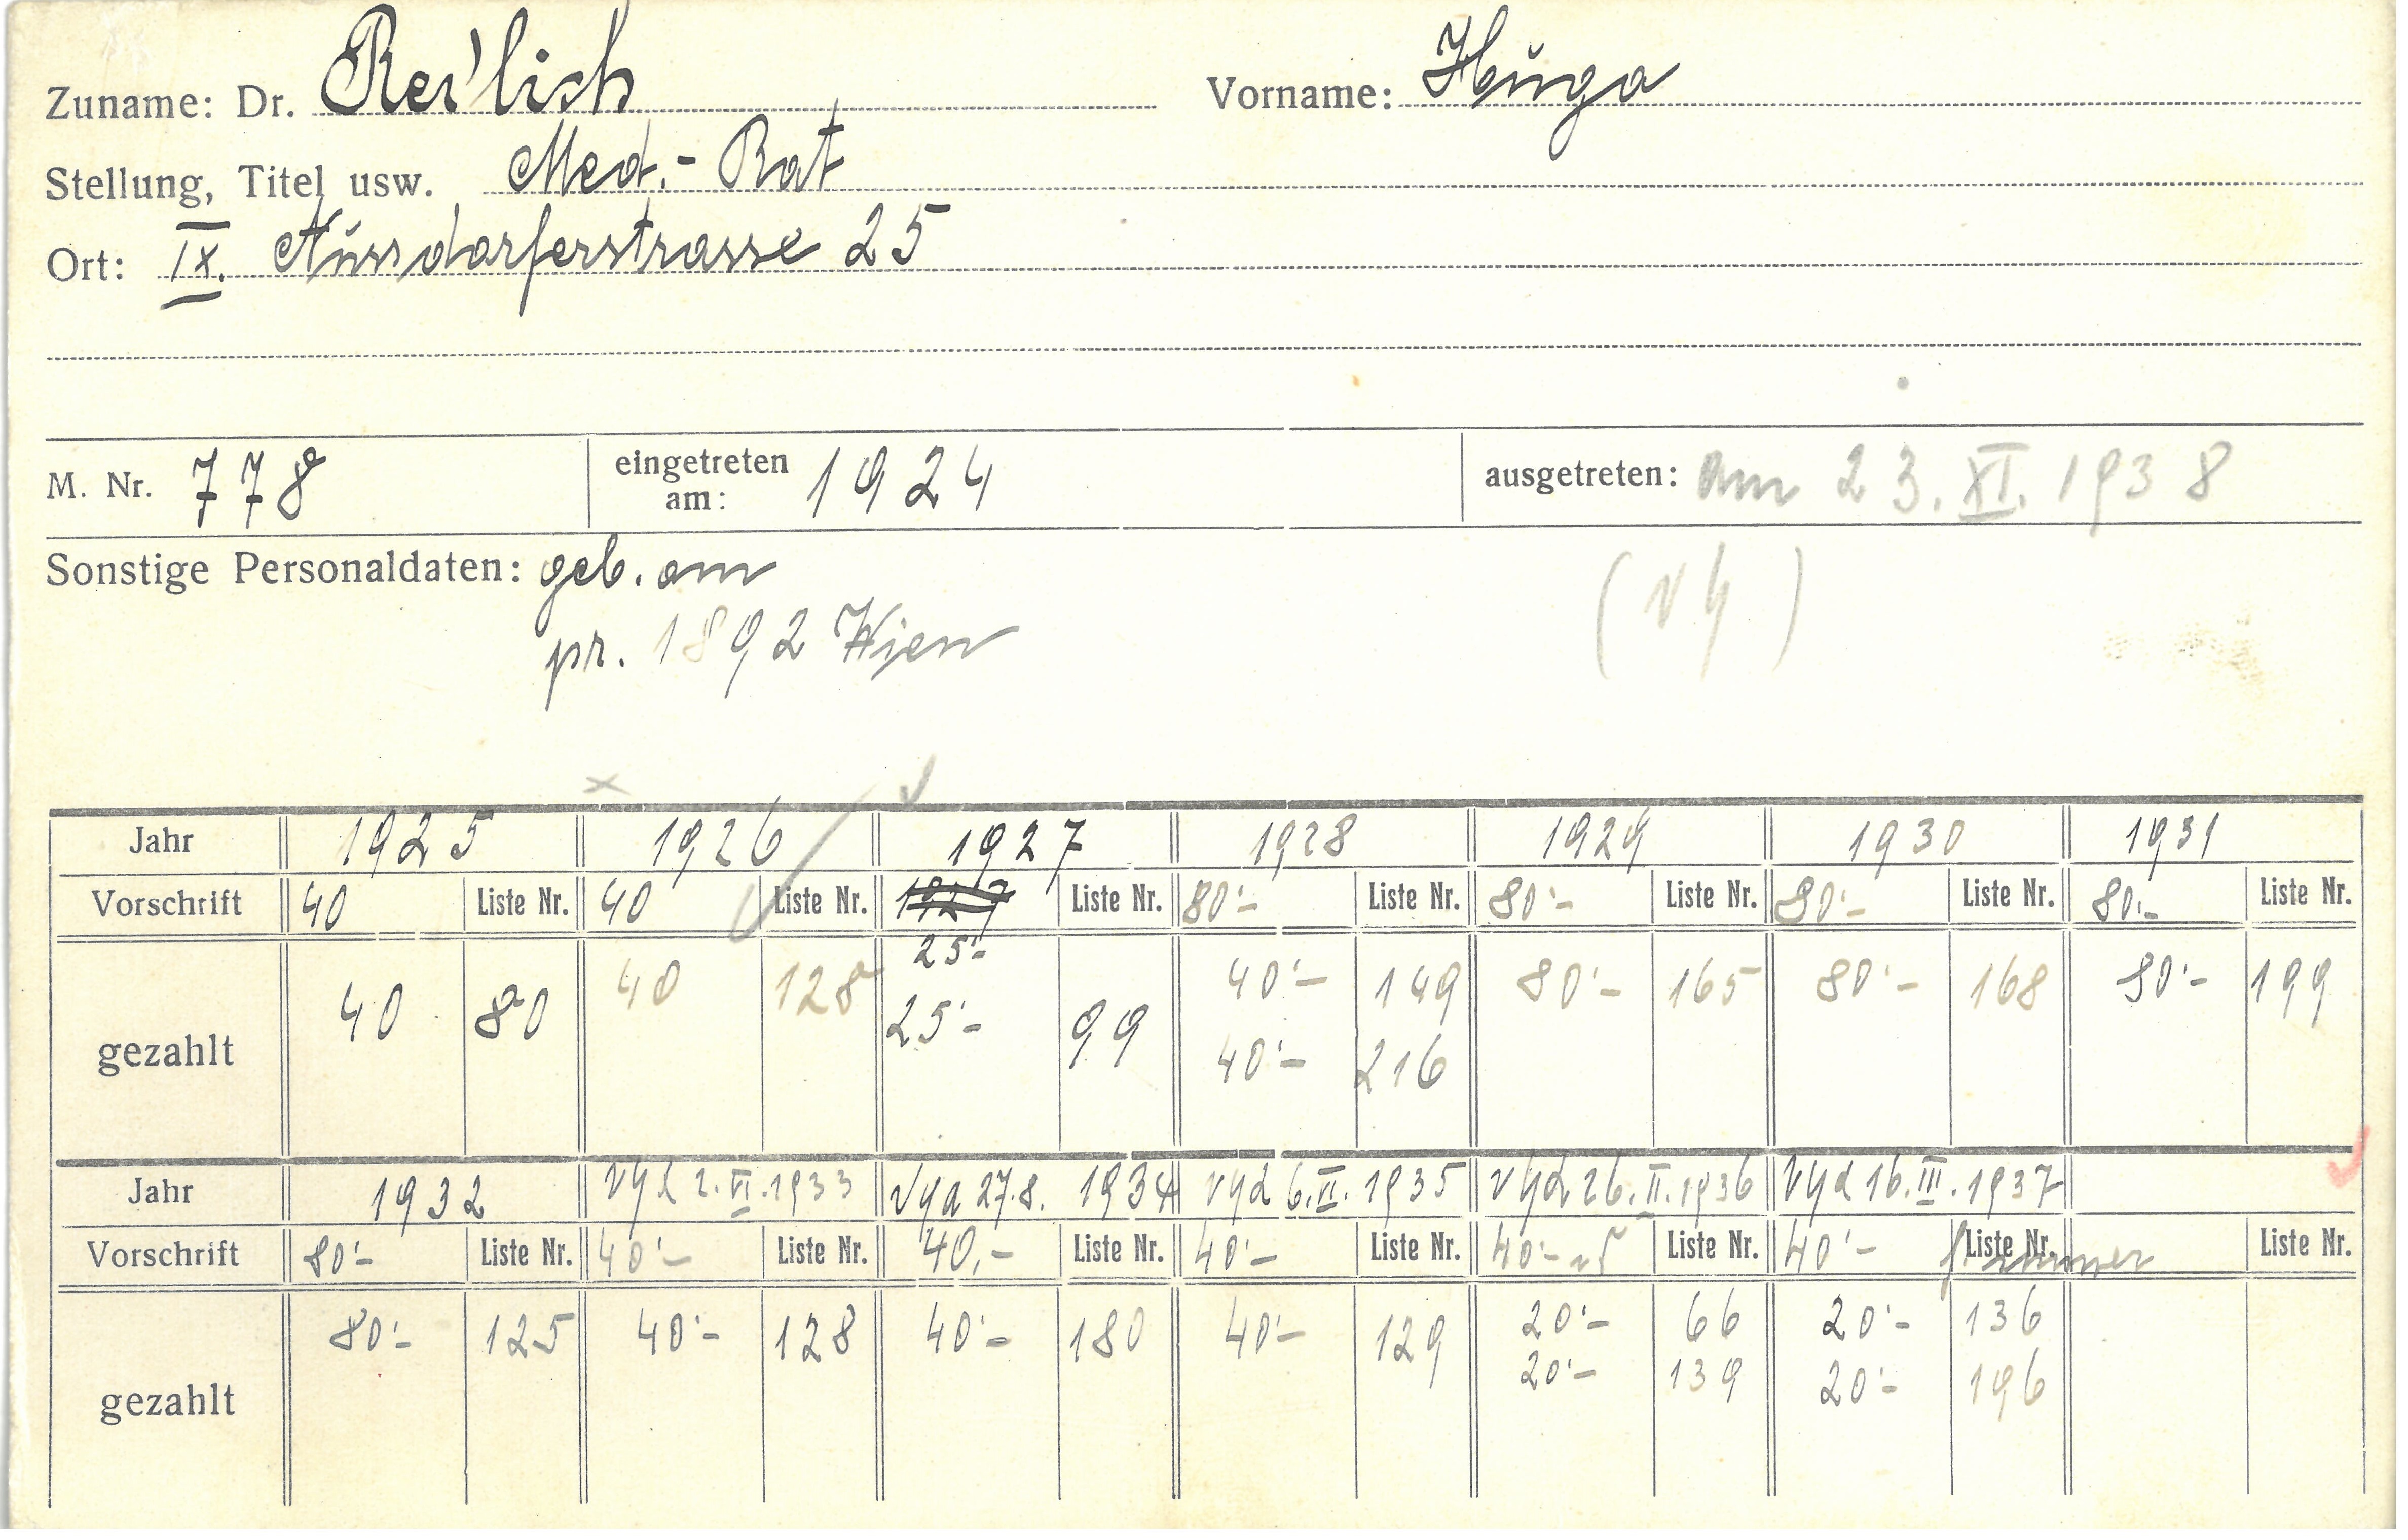 Zuname: Dr. Rei'lich Vorname: Hugo
Stellung, Titel usw. Med.- Rat
Ort: IX. Nussdorferstrasse 25
M. Nr. 778 eingetreten am: 1924 ausgetreten: am 23. XI. 1938
Sonstige Personaldaten: geb. am
pr. 1892 Wien
Jahr 1925 1926 1927 1928 1929 1930 1931
Vorschrift 40 Liste Nr. 40 Liste Nr. Liste Nr. 80'- Liste Nr. 80'- Liste Nr. 80'- Liste Nr. 80.- Liste Nr.
25'-
gezahlt 40 80 40 128 25'- 99 40'- 149 80'- 165 80'- 168 80'- 199
40'- 216
Jahr 1932 1933 27.8. 1934 6. II. 1935 26. II. 1936 16. III. 1937
Vorschrift 80'- Liste Nr. 40'- Liste Nr. 40,- Liste Nr. 40'- Liste Nr. 40'- Liste Nr. 40'- Liste Nr. Liste Nr.
gezahlt 80'- 125 40'- 128 40'- 180 40'- 129 20'- 66 20'- 136
20'- 139 20'- 196